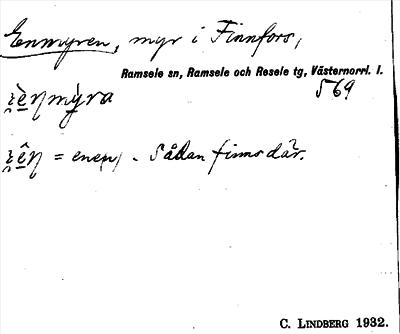 Enmyren, myr i Finnfors,
Ramsele sn, Ramsele och Resele tg, Västernorrl. l.
569
= enen, - Sådan finns där.
C. LINDBERG 1932.